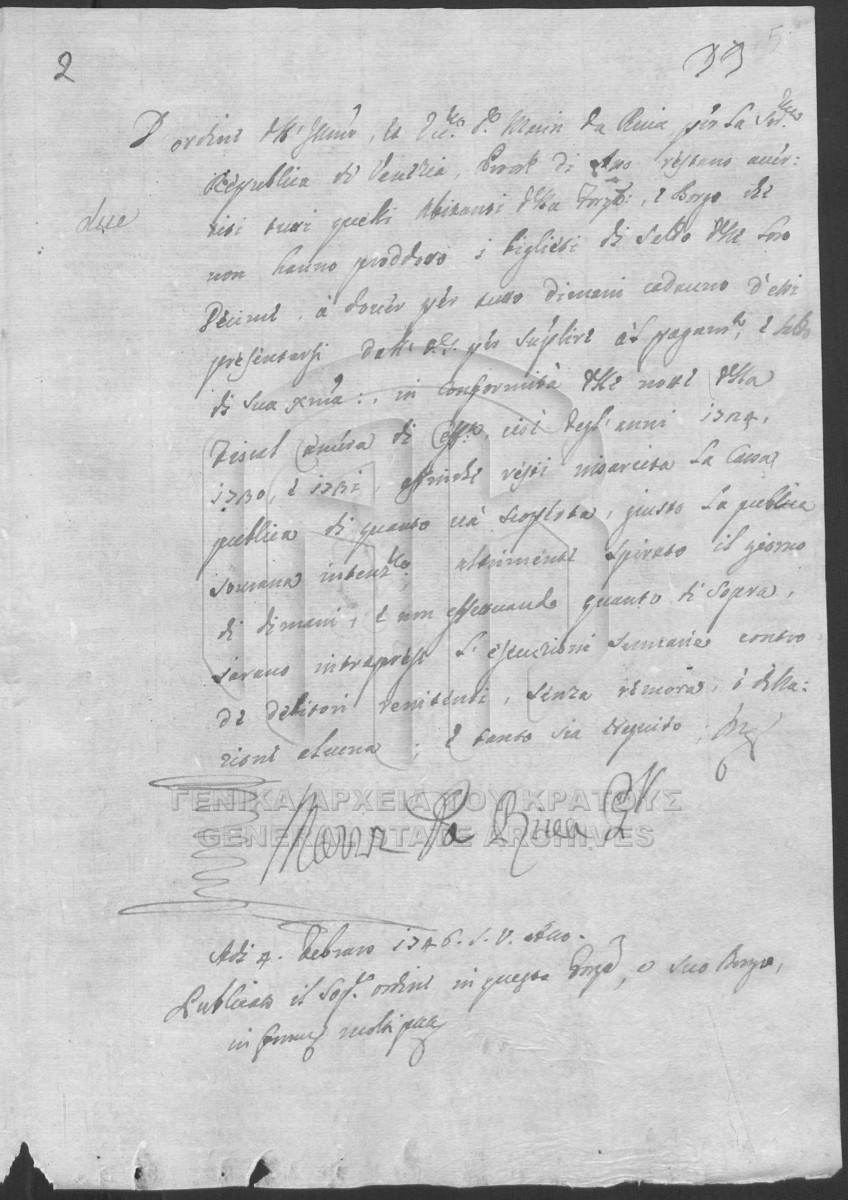 2
39
5
D ordine dell' Illmo, et Ecc.mo S.r Marin Da Riva per la Ser.ma
Republica di Venezia, restano auer-
due
titi tutti quelli Abitanti della Fortza, e Borgo che
non hanno prodotto i biglieti di saldo delle loro
Decime, a douer per tutto dimani cadauno d'essi
presentarsi per suplire al pagam.to, e saldo
di sua, in conformità delle note della
Fiscal Camera di, cioè degl'anni 1724,
1730, e 1731, affinche resti risarcita la Cassa
publica di quanto và scoperta, giusto la publica
sourana intenz.ne; altrimenti spirato il giorno
di dimani, e non essequendo quanto di sopra,
sarano intraprese l'esecuzioni sumarie contro
de debitori renitenti, senza remora, ò dilla-
zione alcuna; e tanto sia esequito;
Marin Da Riva
ΓΕΝΙΚΑ ΑΡΧΕΙΑ ΤΟΥ ΚΡΑΤΟΥΣ
GENERAL STATE ARCHIVES
Adi 4. Febraro 1746. S. V.
Publicato il sop.to ordine in questa Fortza, e suo Borgo,
in molti